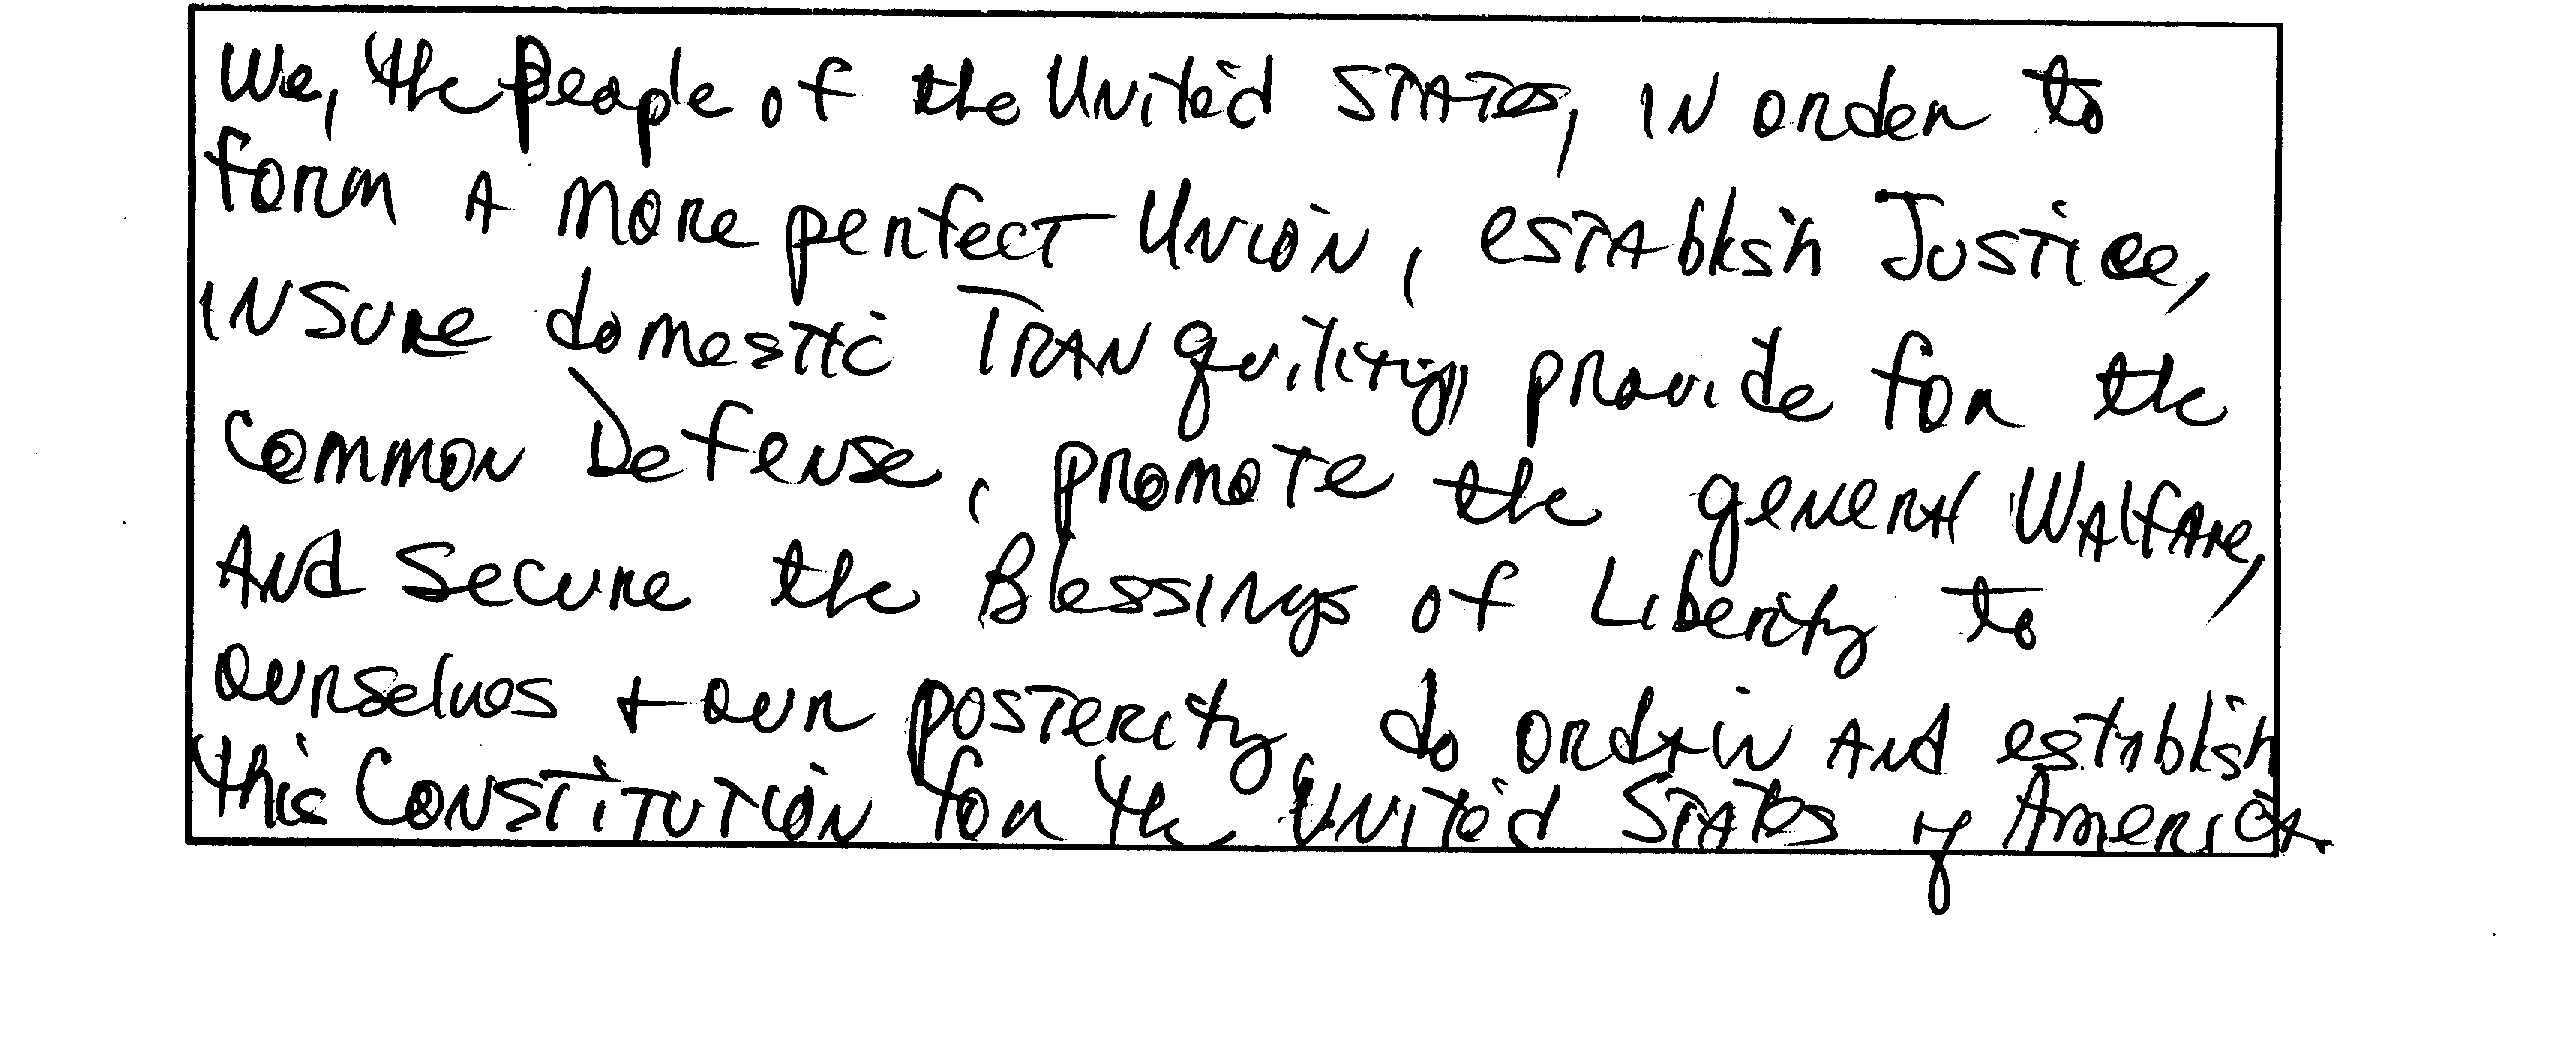 We, the People of the United States, in order to
form a more perfect Union, establish Justice,
insure domestic Tranquility, provide for the
Common Defense, promote the general Walfare,
And Secure the Blessings of Liberity to
ourselves + our posterity, do ordain and establish
this Constitution for the United States of America